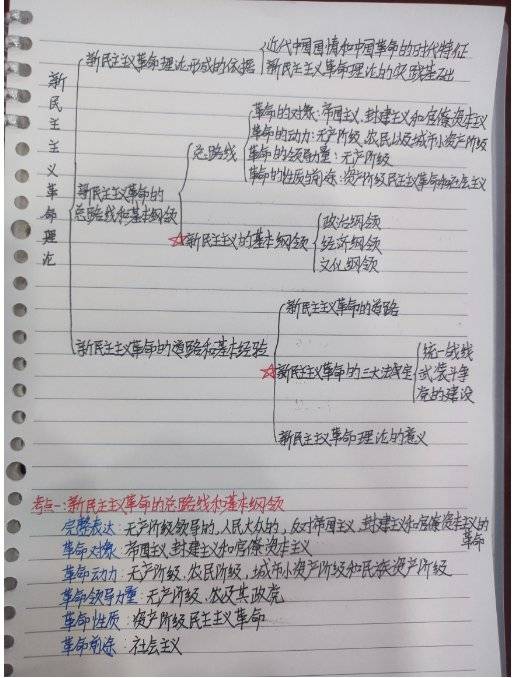 新民主主义革命理论
新民主主义革命理论形成的依据
近代中国国情和中国革命的时代特征
新民主主义革命理论的实践基础
新民主主义革命的
总路线和基本纲领
总路线
革命的对象:帝国主义,封建主义和官僚资本主义
革命的动力:无产阶级,农民以及城市小资产阶级
革命的领导力量:无产阶级
革命的性质与前途:资产阶级民主主义革命和社会主义
☆新民主主义的基本纲领
政治纲领
经济纲领
文化纲领
新民主主义革命的道路和基本经验
新民主主义革命的道路
☆新民主主义革命的三大法宝
统一战线
武装斗争
党的建设
新民主主义革命理论的意义
考点一:新民主主义革命的总路线和基本纲领
完整表达:无产阶级领导的,人民大众的,反对帝国主义,封建主义和官僚资本主义的
革命
革命对象:帝国主义,封建主义和官僚资本主义
革命动力:无产阶级,农民阶级,城市小资产阶级和民族资产阶级
革命领导力量:无产阶级,及其政党
革命性质:资产阶级民主主义革命
革命前途:社会主义